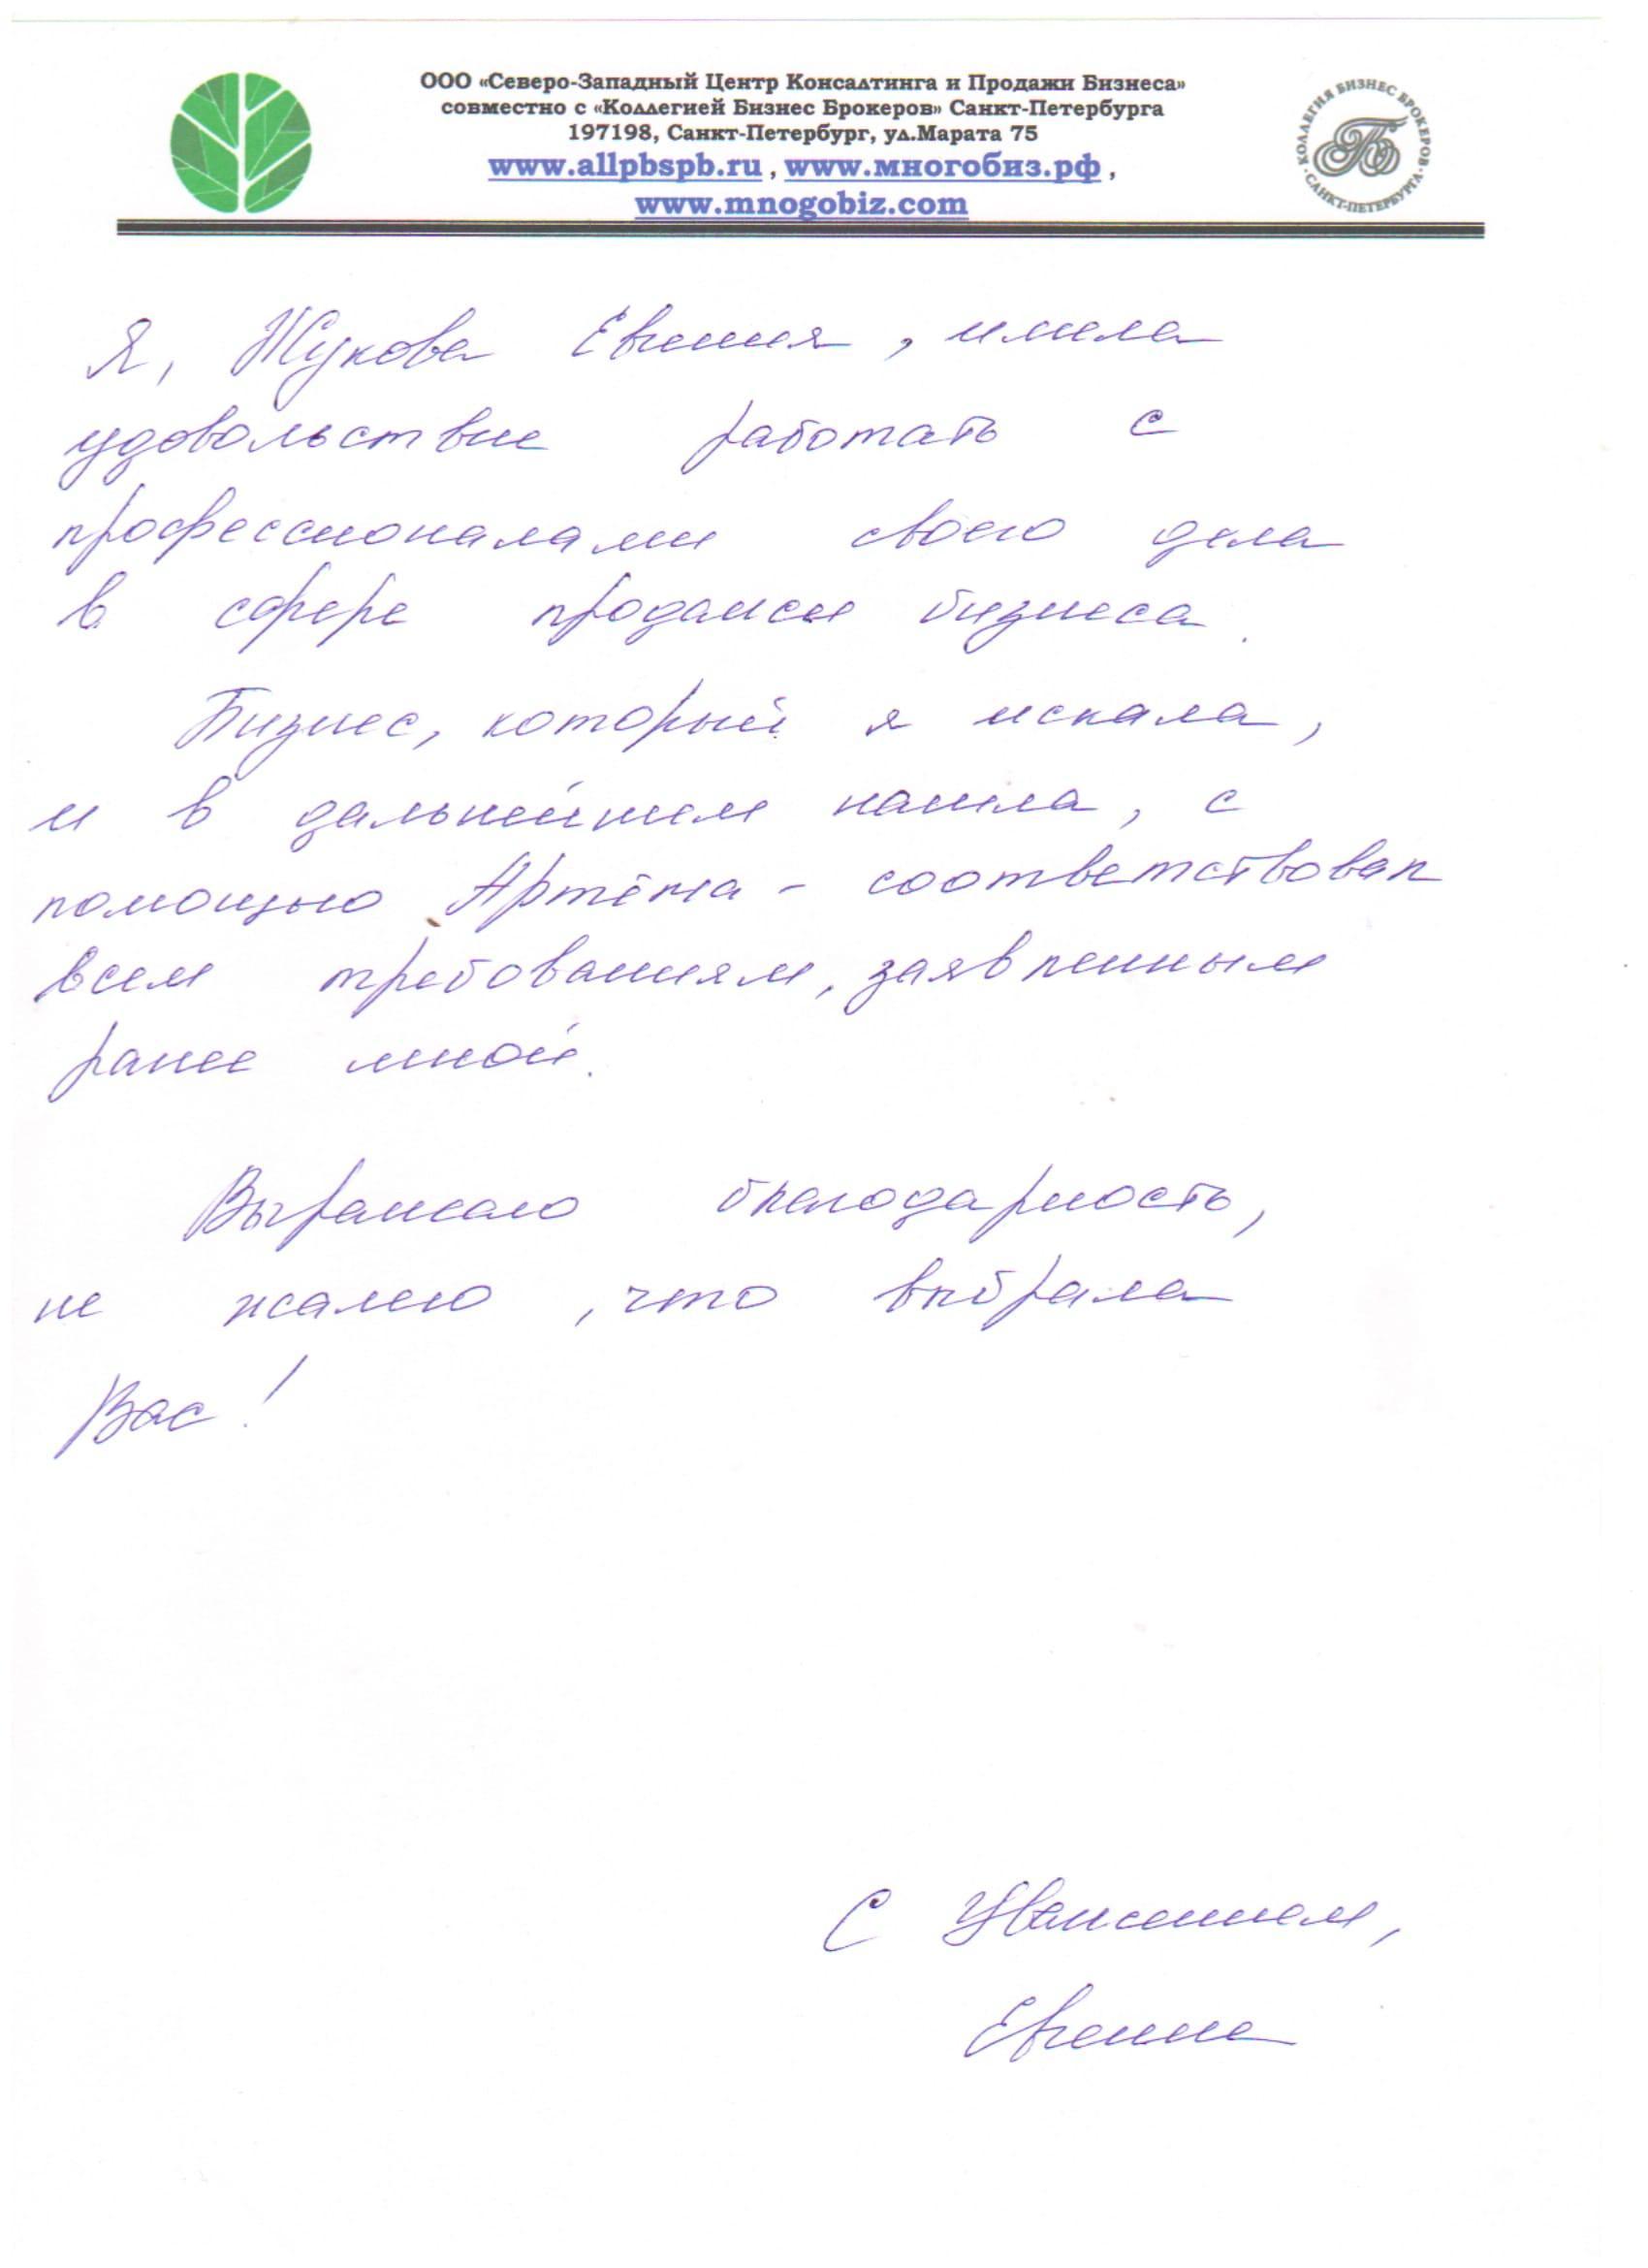 ООО «Северо-Западный Центр Консалтинга и Продажи Бизнеса»
совместно с «Коллегией Бизнес Брокеров» Санкт-Петербурга
197198, Санкт-Петербург, ул.Марата 75
www.allpbspb.ru , www.многобиз.рф ,
www.mnogobiz.com
КОЛЛЕГИЯ БИЗНЕС БРОКЕРОВ · САНКТ-ПЕТЕРБУРГА ·
Я, Жукова Евгения, имела
удовольствие работать с
профессионалами своего дела
в сфере продажи бизнеса.
Бизнес, который я искала,
и в дальнейшем нашла, с
помощью Артёма - соответствовал
всем требованиям, заявленным
ранее мной.
Выражаю благодарность,
не жалею, что выбрала
Вас!
С Уважением,
Евгения